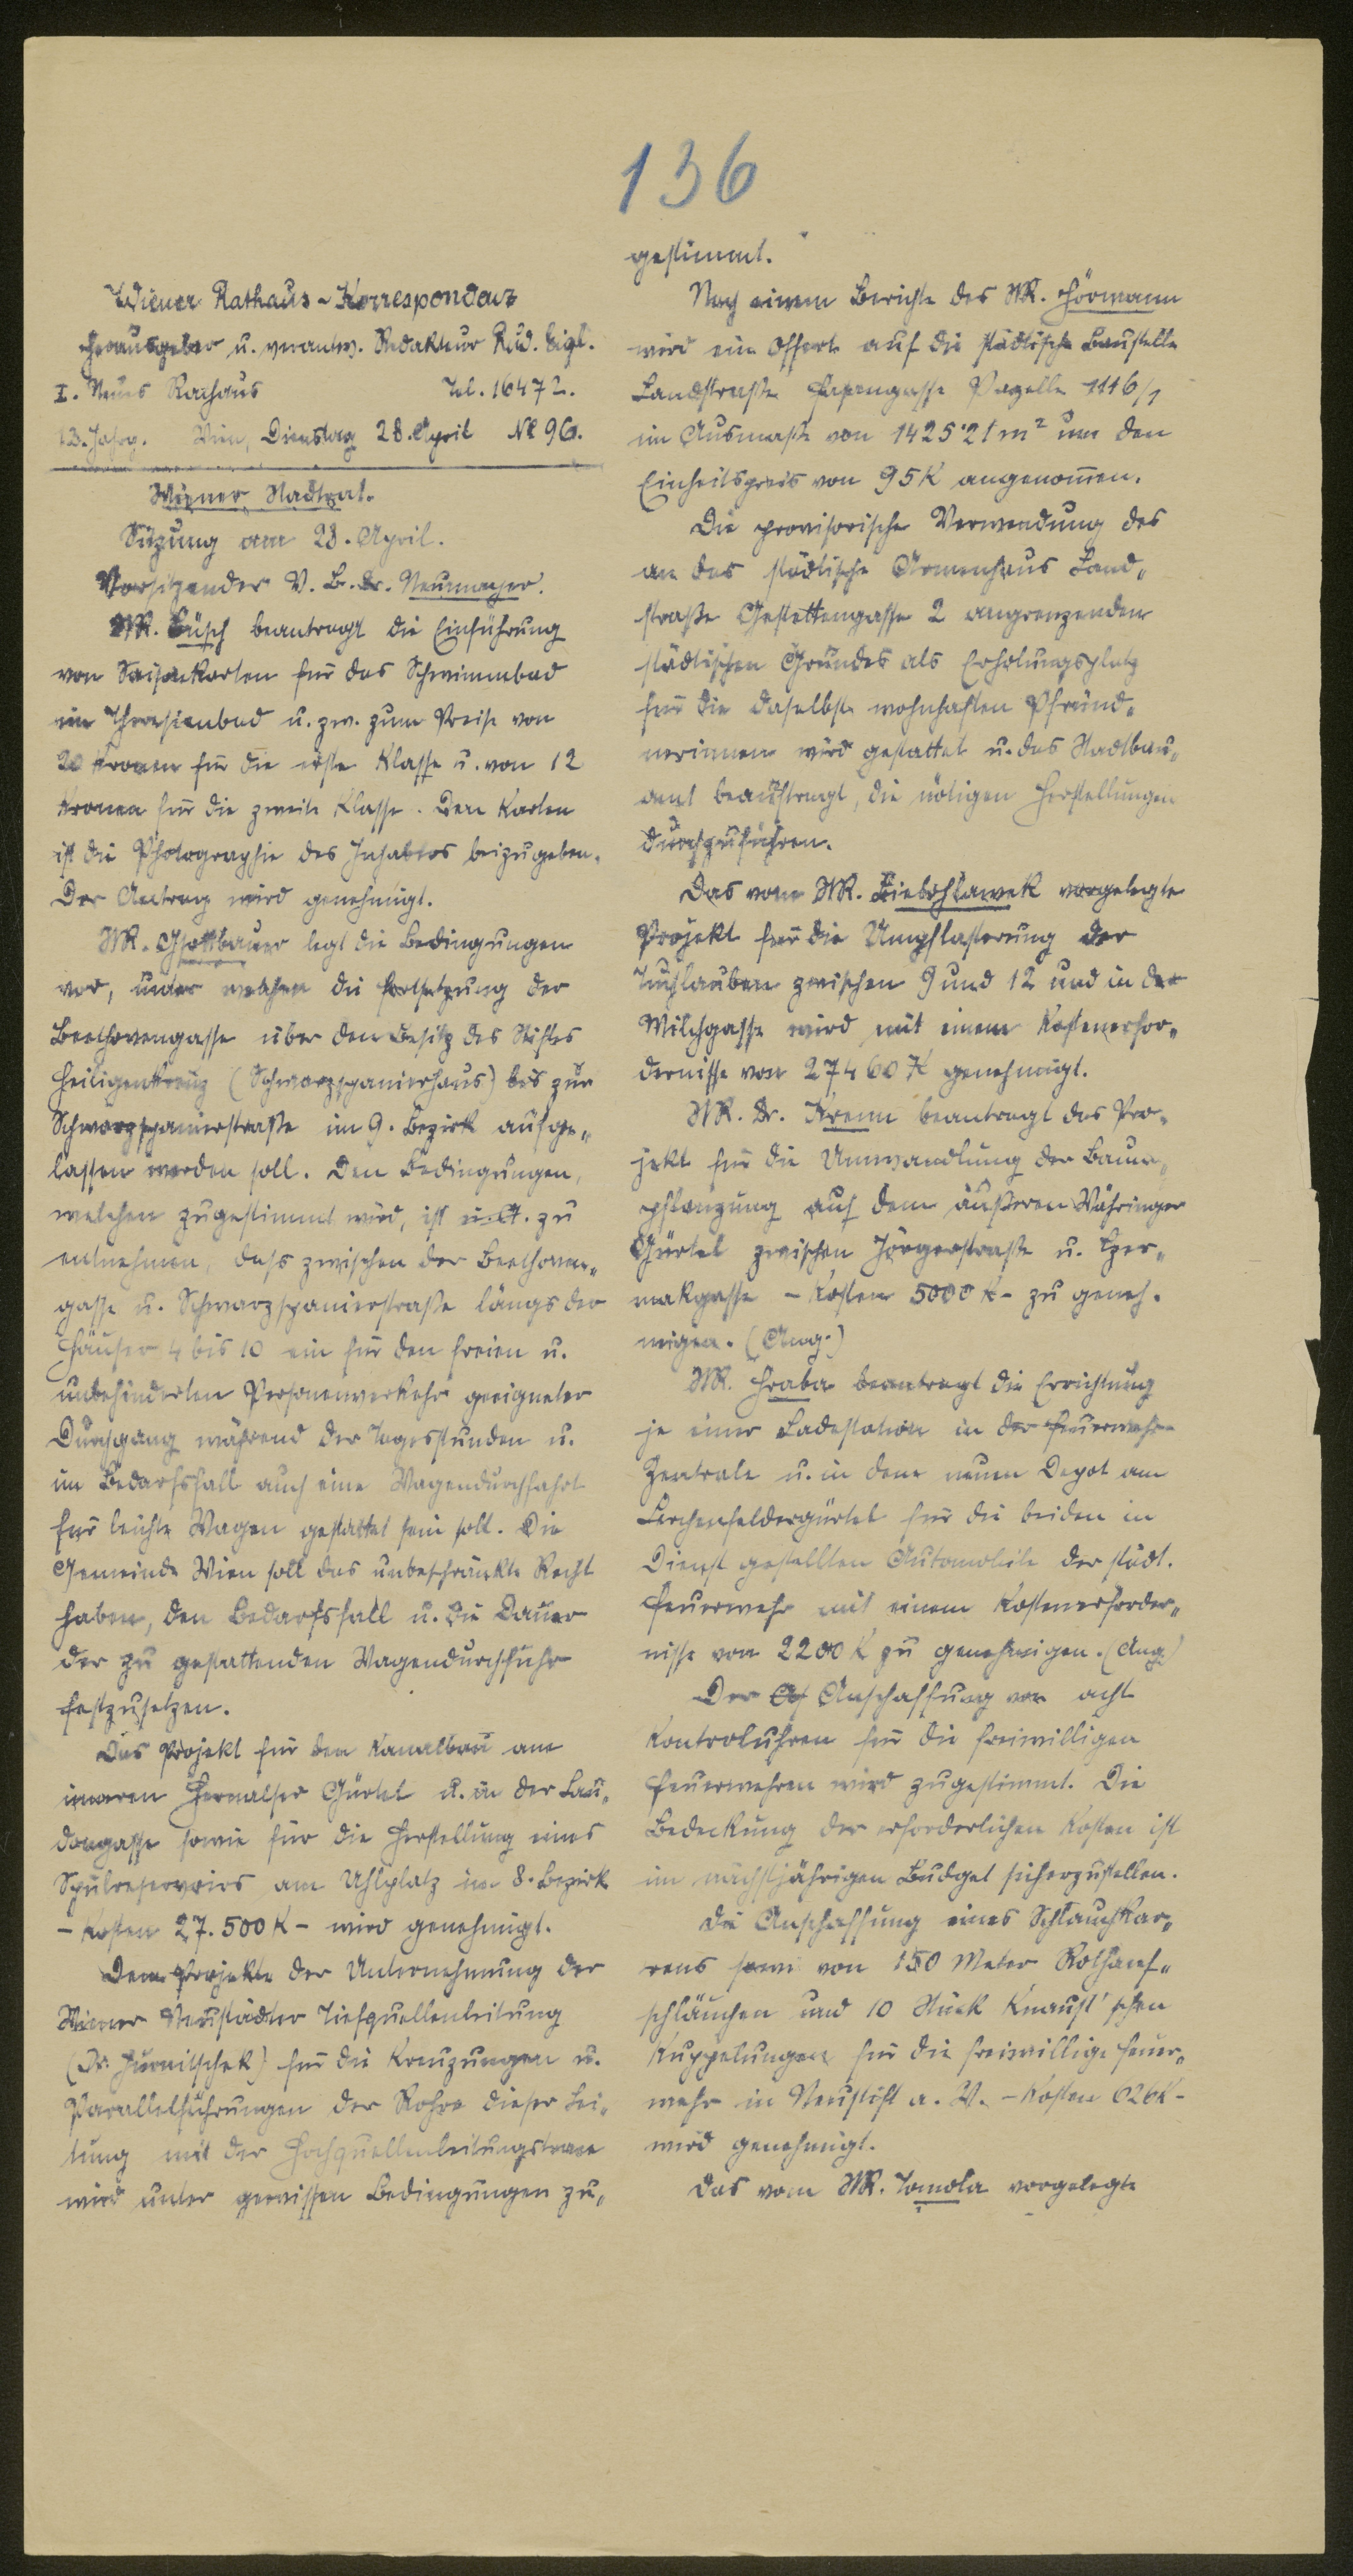 136
Wiener Rathaus-Korrespondenz
Herausgeber u. verantw. Redakteur Rud. Eigl.
I. Neues Rathaus Tel. 16472.
13. Jahrg. Wien, Dienstag 28. April No 96.
Wiener Stadtrat.
Sitzung am 28. April.
Vorsitzender V. B. Dr. Neumayer.
StR. Büsch beantragt die Einführung
von Saisonkarten für das Schwimmbad
im Theresienbad u. zw. zum Preise von
20 Kronen für die erste Klasse u. von 12
Kronen für die zweite Klasse. Den Karten
ist die Photographie des Inhabers beizugeben.
Der Antrag wird genehmigt.
StR. Gsottbauer legt die Bedingungen
vor, unter welchen die Fortsetzung der
Beethovengasse über den Besitz des Stiftes
Heiligenkreuz (Schwarzspanierhaus) bis zur
Schwarzspanierstraße im 9. Bezirk aufge„
lassen werden soll. Den Bedingungen,
welchen zugestimmt wird, ist u. A. zu
entnehmen, daß zwischen der Beethoven„
gasse u. Schwarzspanierstraße längs der
Häuser 4 bis 10 ein für den freien u.
unbehinderten Personenverkehr geeigneter
Durchgang während der Tagesstunden u.
im Bedarfsfall auch eine Wagendurchfahrt
für leichte Wagen gestattet sein soll. Die
Gemeinde Wien soll das unbeschränkte Recht
haben, den Bedarfsfall u. die Dauer
der zu gestattenden Wagendurchfuhr
festzusetzen.
Das Projekt für den Kanalbau am
inneren Hernalser Gürtel u. in der Lau„
dongasse sowie für die Herstellung eines
Spülreservoirs am Uhlplatz im 8. Bezirk
– Kosten 27.500 K – wird genehmigt.
Dem Projekte der Unternehmung der
Wiener Neustädter Tiefquellenleitung
(Dr. Hurnitschek) für die Kreuzungen u.
Parallelführungen der Rohre dieser Lei„
tung mit der Hochquellenleitungstrace
wird unter gewissen Bedingungen zu„
gestimmt.
Nach einem Berichte des StR. Hörmann
wird ein Offert auf die städtische Baustelle
Landstraße Parzelle 1116/1
im Ausmaße von 1425·21 m² um den
Einheitspreis von 95 K angenom̄en.
Die provisorische Verwendung des
an das städtische Armenhaus Land„
straße Gestettengasse 2 angrenzenden
städtischen Grundes als Erholungsplatz
für die daselbst wohnhaften Pfründ„
nerinnen wird gestattet u. das Stadtbau„
amt beauftragt, die nötigen Herstellungen
durchzuführen.
Das vom StR. Zieboslawek vorgelegte
Projekt für die Umpflasterung der
Tuchlauben zwischen 9 und 12 und in der
Milchgasse wird mit einem Kostenerfor„
dernisse von 27460 K genehmigt.
StR. Dr. Krenn beantragt das Pro„
jekt für die Umwandlung der Baum„
pflanzung auf dem äußeren Währinger
Gürtel zwischen Jörgerstraße u. Czer„
makgasse – Kosten 5000 K – zu geneh„
migen. (Ang.)
StR. Hraba beantragt die Errichtung
je einer Ladestation in der Feuerwehr-
Zentrale u. in dem neuen Depot am
Lerchenfeldergürtel für die beiden in
Dienst gestellten Automobile der städt.
Feuerwehr mit einem Kostenerforder„
nisse von 2200 K zu genehmigen. (Ang.)
Der Anschaffung von acht
Kontroluhren für die freiwilligen
Feuerwehren wird zugestimmt. Die
Bedeckung der erforderlichen Kosten ist
im nächstjährigen Budget sicherzustellen.
Die Anschaffung eines Schlauchkar„
rens sowie von 150 Meter Rohhanf„
schläuchen und 10 Stück Knaust'schen
Kuppelungen für die freiwillige Feuer„
wehr in Neustift a. W. – Kosten 626 K –
wird genehmigt.
Das vom StR. Tomola vorgelegte